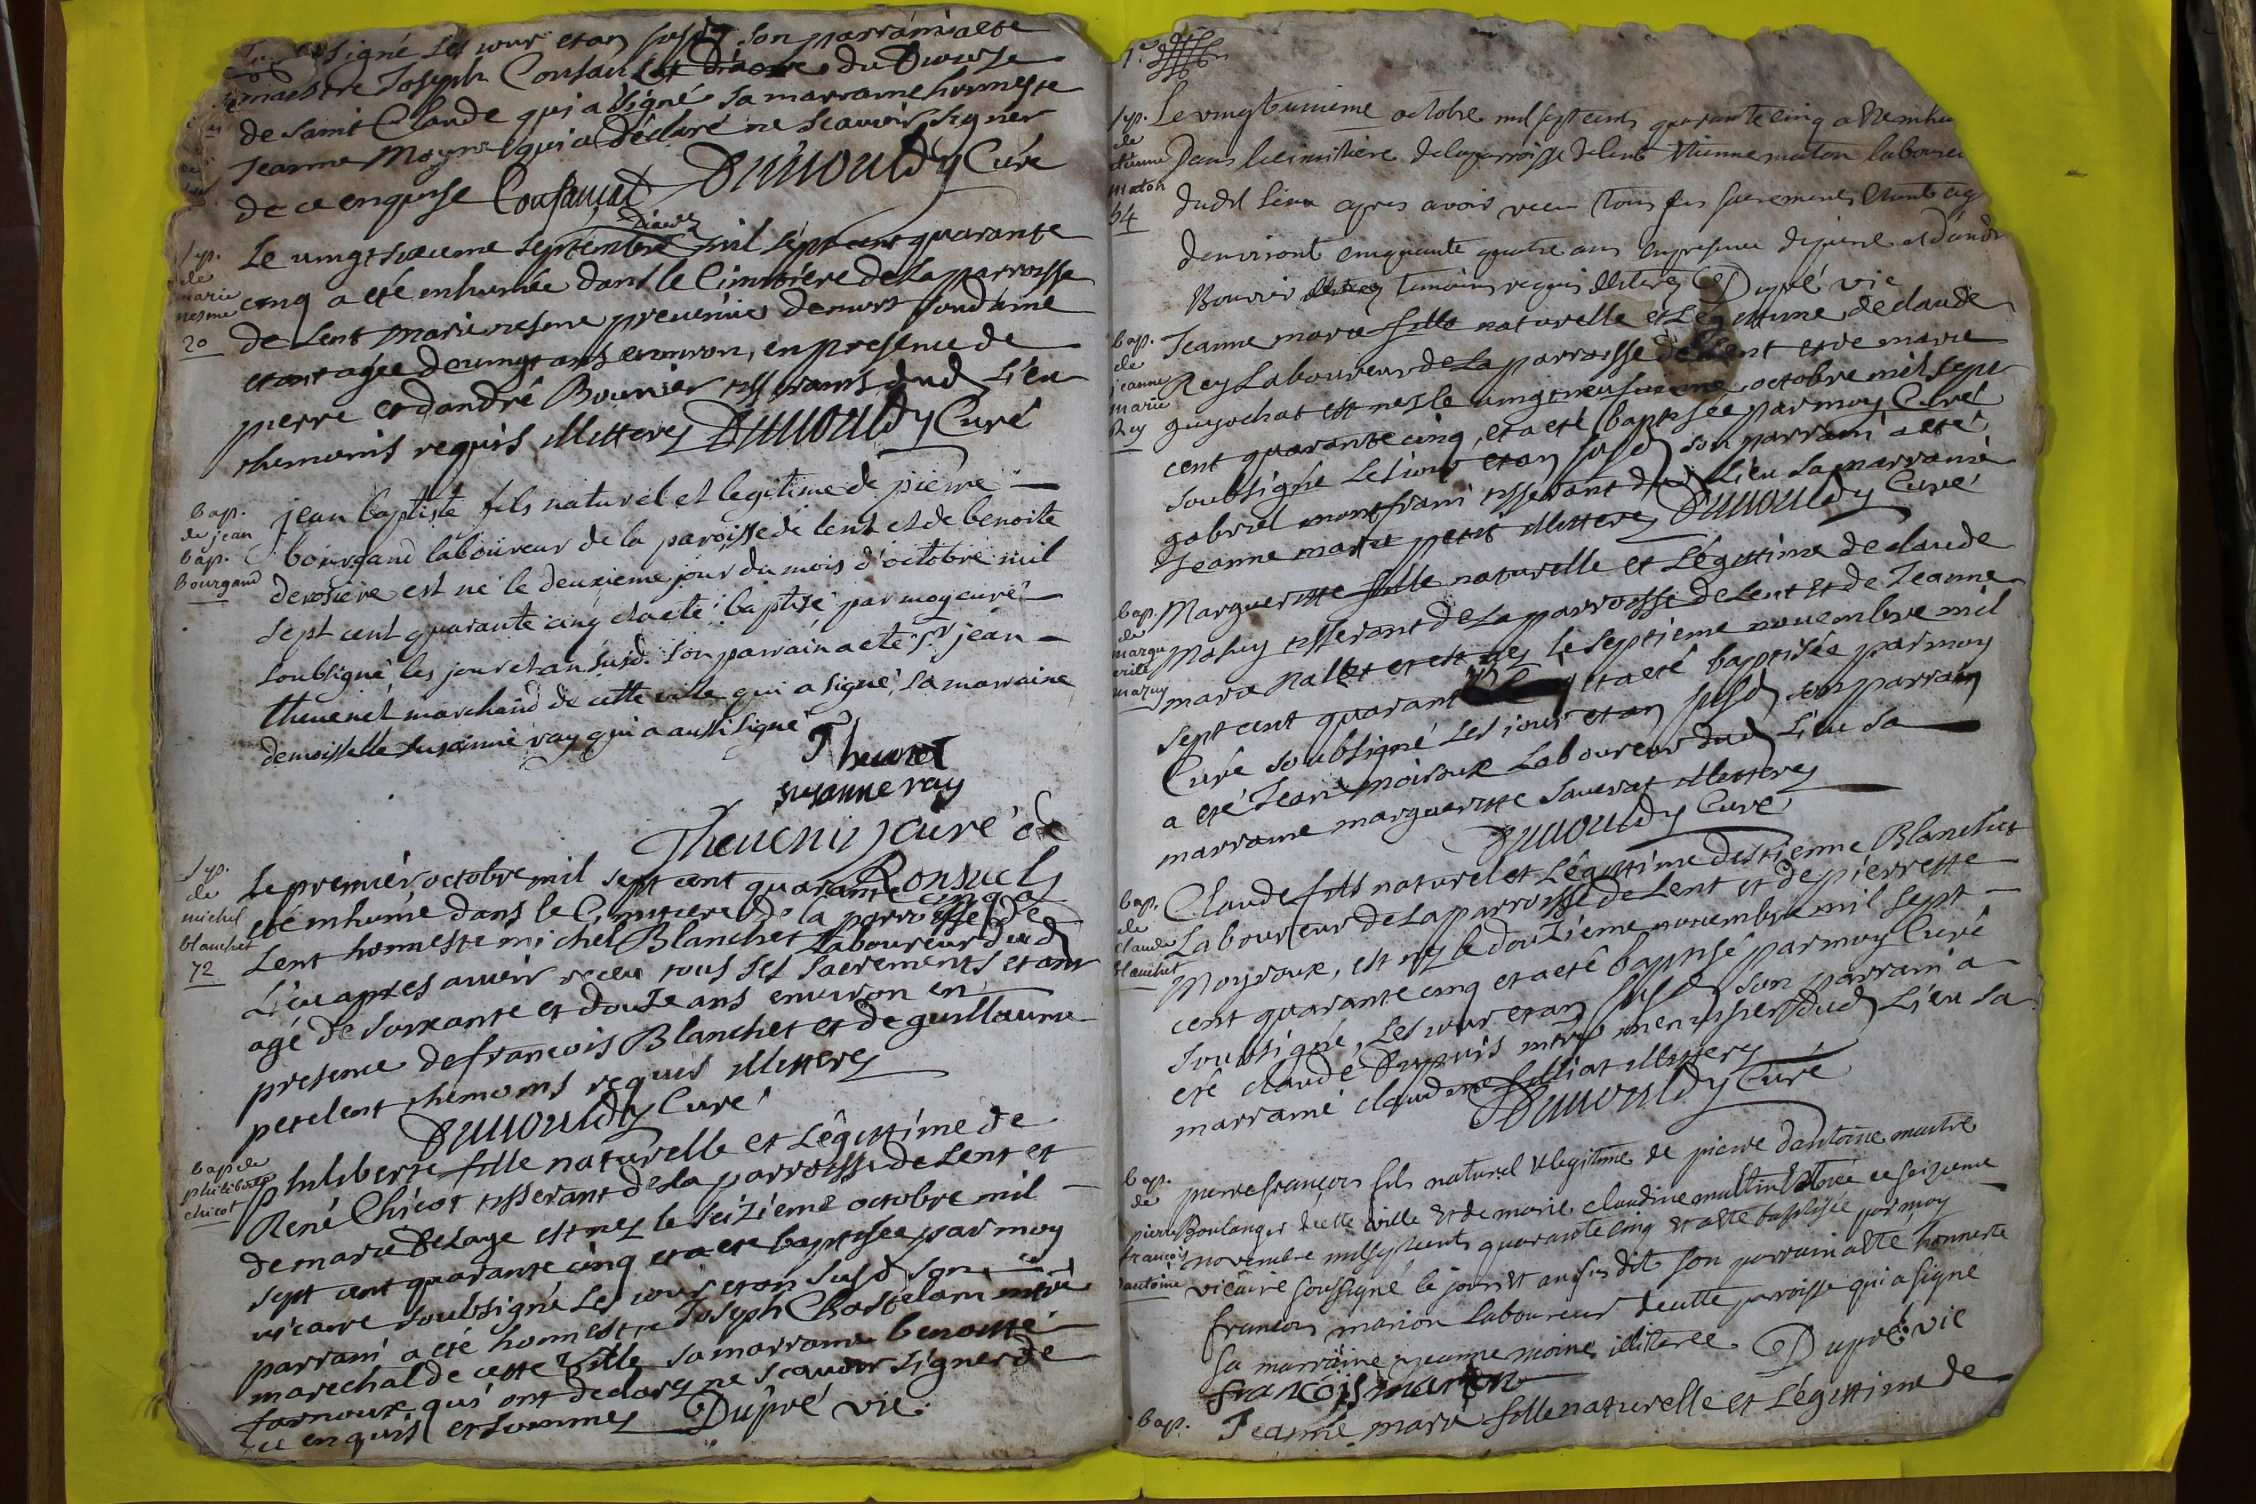 signé les jour et an susd son parrain a eté
maestre Joseph Consancet diacre du Diocese
de Saint Claude qui a signé sa marraine honneste
Jeanne Moyne qui a declaré ne scavoir signer
de ce enquise Consancet Dunouldy Curé
diacre
Sep. de marie nesme 20
Le vingt sixieme septembre mil sept cent quarante
cinq a eté enhumée dans le Cimitiere de la parroisse
de Lent marie nesme prevenüe de mort soudaine
etant agée de vingt ans environ, en presence de
pierre et d'andré Bouvier tisserants dud Lieu
themoins requis illitterez Dunouldy Curé
Bap. de jean bap. Bourgand
jean baptiste fils naturel et legitime de pierre
bourgand laboureur de la paroisse de lent et de benoite
derosiere est né le deuxieme jour du mois d'octobre mil
sept cent quarante cinq et a eté baptisé par moy curé
soubsigné, les jour et an susd. son parrain a eté sr jean
thevenet marchand de cette ville qui a signé, sa marraine
demoisselle susanne ray qui a aussi signé
Thevenet
susanne ray
Thevenin curé de
Ronsuels
Sep. de michel blanchet 72
Le premier octobre mil sept cent quarante cinq a
eté inhumé dans le Cimitiere de la parroisse de
Lent honneste michel Blanchet Laboureur dud
Lieu apres avoir receu tous ses sacrements etant
agé de soixante et douze ans environ en
presence de francois Blanchet et de guillaume
perelent themoins requis illitterez
Dunouldy Curé
bap de philiberte chicot
philiberte fille naturelle et Légittime de
René Chicot tisserant de la parroisse de Lent et
de marie Delaye est nez le seizieme octobre mil
sept cent quarante cinq et a eté baptisée par moy
vicaire soubsigné les jour et an susd son
parrain a eté honneste Joseph Chastelain mtre
marechal de cette ville sa marraine benoitte
farnoux qui ont declarez ne scavoir signer de
ce enquis et sommez Dupré vic.
Sep. de etienne maton 54
Le vingt unieme octobre mil sept cents quarante cinq a
Dans le cimitiere de la parroisse de lent Etienne maton
dudt Lieu apres avoir receu tous ses sacrements etant
denviront cinquante quatre ans en presence de pierre et
Bouvier temoins requis illiterez Dupré vic
bap. de jeanne marie Rey
Jeanne marie fille naturelle et Légittime de claude
Rey Laboureur de la parroisse de Lent et de marie
guyochat est nez le vingt neufvieme octobre mil sept
cent quarante cinq, et a eté baptisée par moy Curé
soubsigné Les jour et an susd son parrain a eté
gabriel montfrain tisserant dud Lieu sa marraine
Jeanne marie petit illitterez Dunouldy Curé
bap. de marguerite mazuy
Marguerite fille naturelle et Légittime de claude
Mazuy tisserant de la parroisse de Lent et de Jeanne
marie nallet et est nez le septieme novembre mil
sept cent quarante et a eté baptisée par moy
Curé soubsigné Les jour et an susd son parrain
a eté Jean moiroux Laboureur dud Lieu sa
marraine marguerite sauerat illitterez
Dunouldy Curé
bap. de claude blanchet
Claude fils naturel et Légittime d'estienne Blanchet
Laboureur de la parroisse de Lent et de pierrette
Moyroux, est nez le douzieme novembre mil sept
cent quarante cinq et a eté baptisé par moy Curé
soubsigné, Les jour et an susd son parrain a
eté claude Dupuis mtre menuisier dud Lieu sa
marraine claudine filliat illitterez
Dunouldy Curé
bap. de pierre francois dantoine
pierre francois fils naturel & legitime de pierre dantoine maitre
Boulanger de cette ville et de marie claudine ce seizieme
novembre mil sept cents quarante cinq et a ete baptisée par moy
vicaire soussigné le jour et an sus dit son parrain a eté honneste
francois marion Laboureur de cette paroisse qui a signé
sa marraine jeanne moine illiterée Dupré vic
francois marion
bap. Jeanne marie fille naturelle et Légittime de